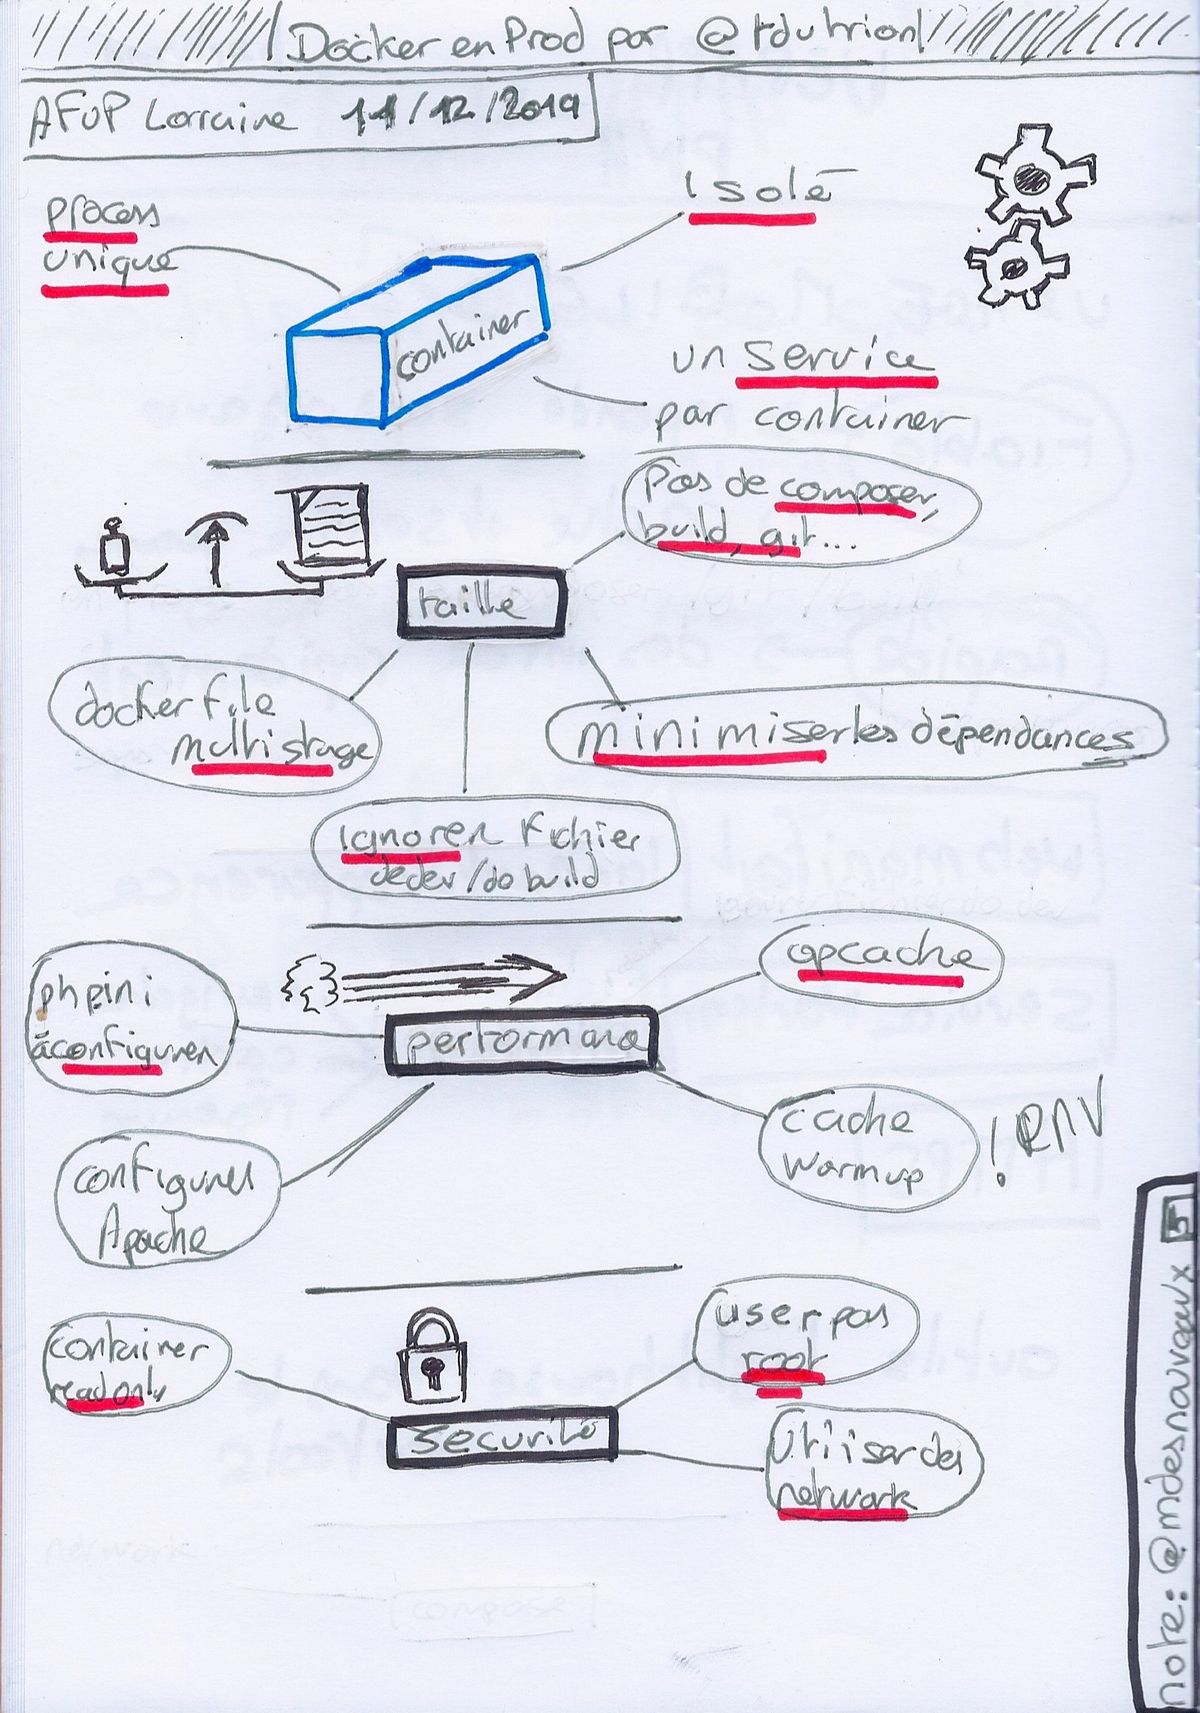 Docker en Prod par @tdutrion
AFUP Lorraine 11/12/2019
process
unique
isolé
container
un service
par container
Pas de composer,
build, git...
taille
dockerfile
multistage
minimiser les dépendances
ignorer fichier
de dev / de build
opcache
php ini
à configurer
performance
cache
warmup
!
configurer
Apache
user pas
root
container
read only
sécurité
utiliser des
network
note: @mdesnouveaux 5
network
compose